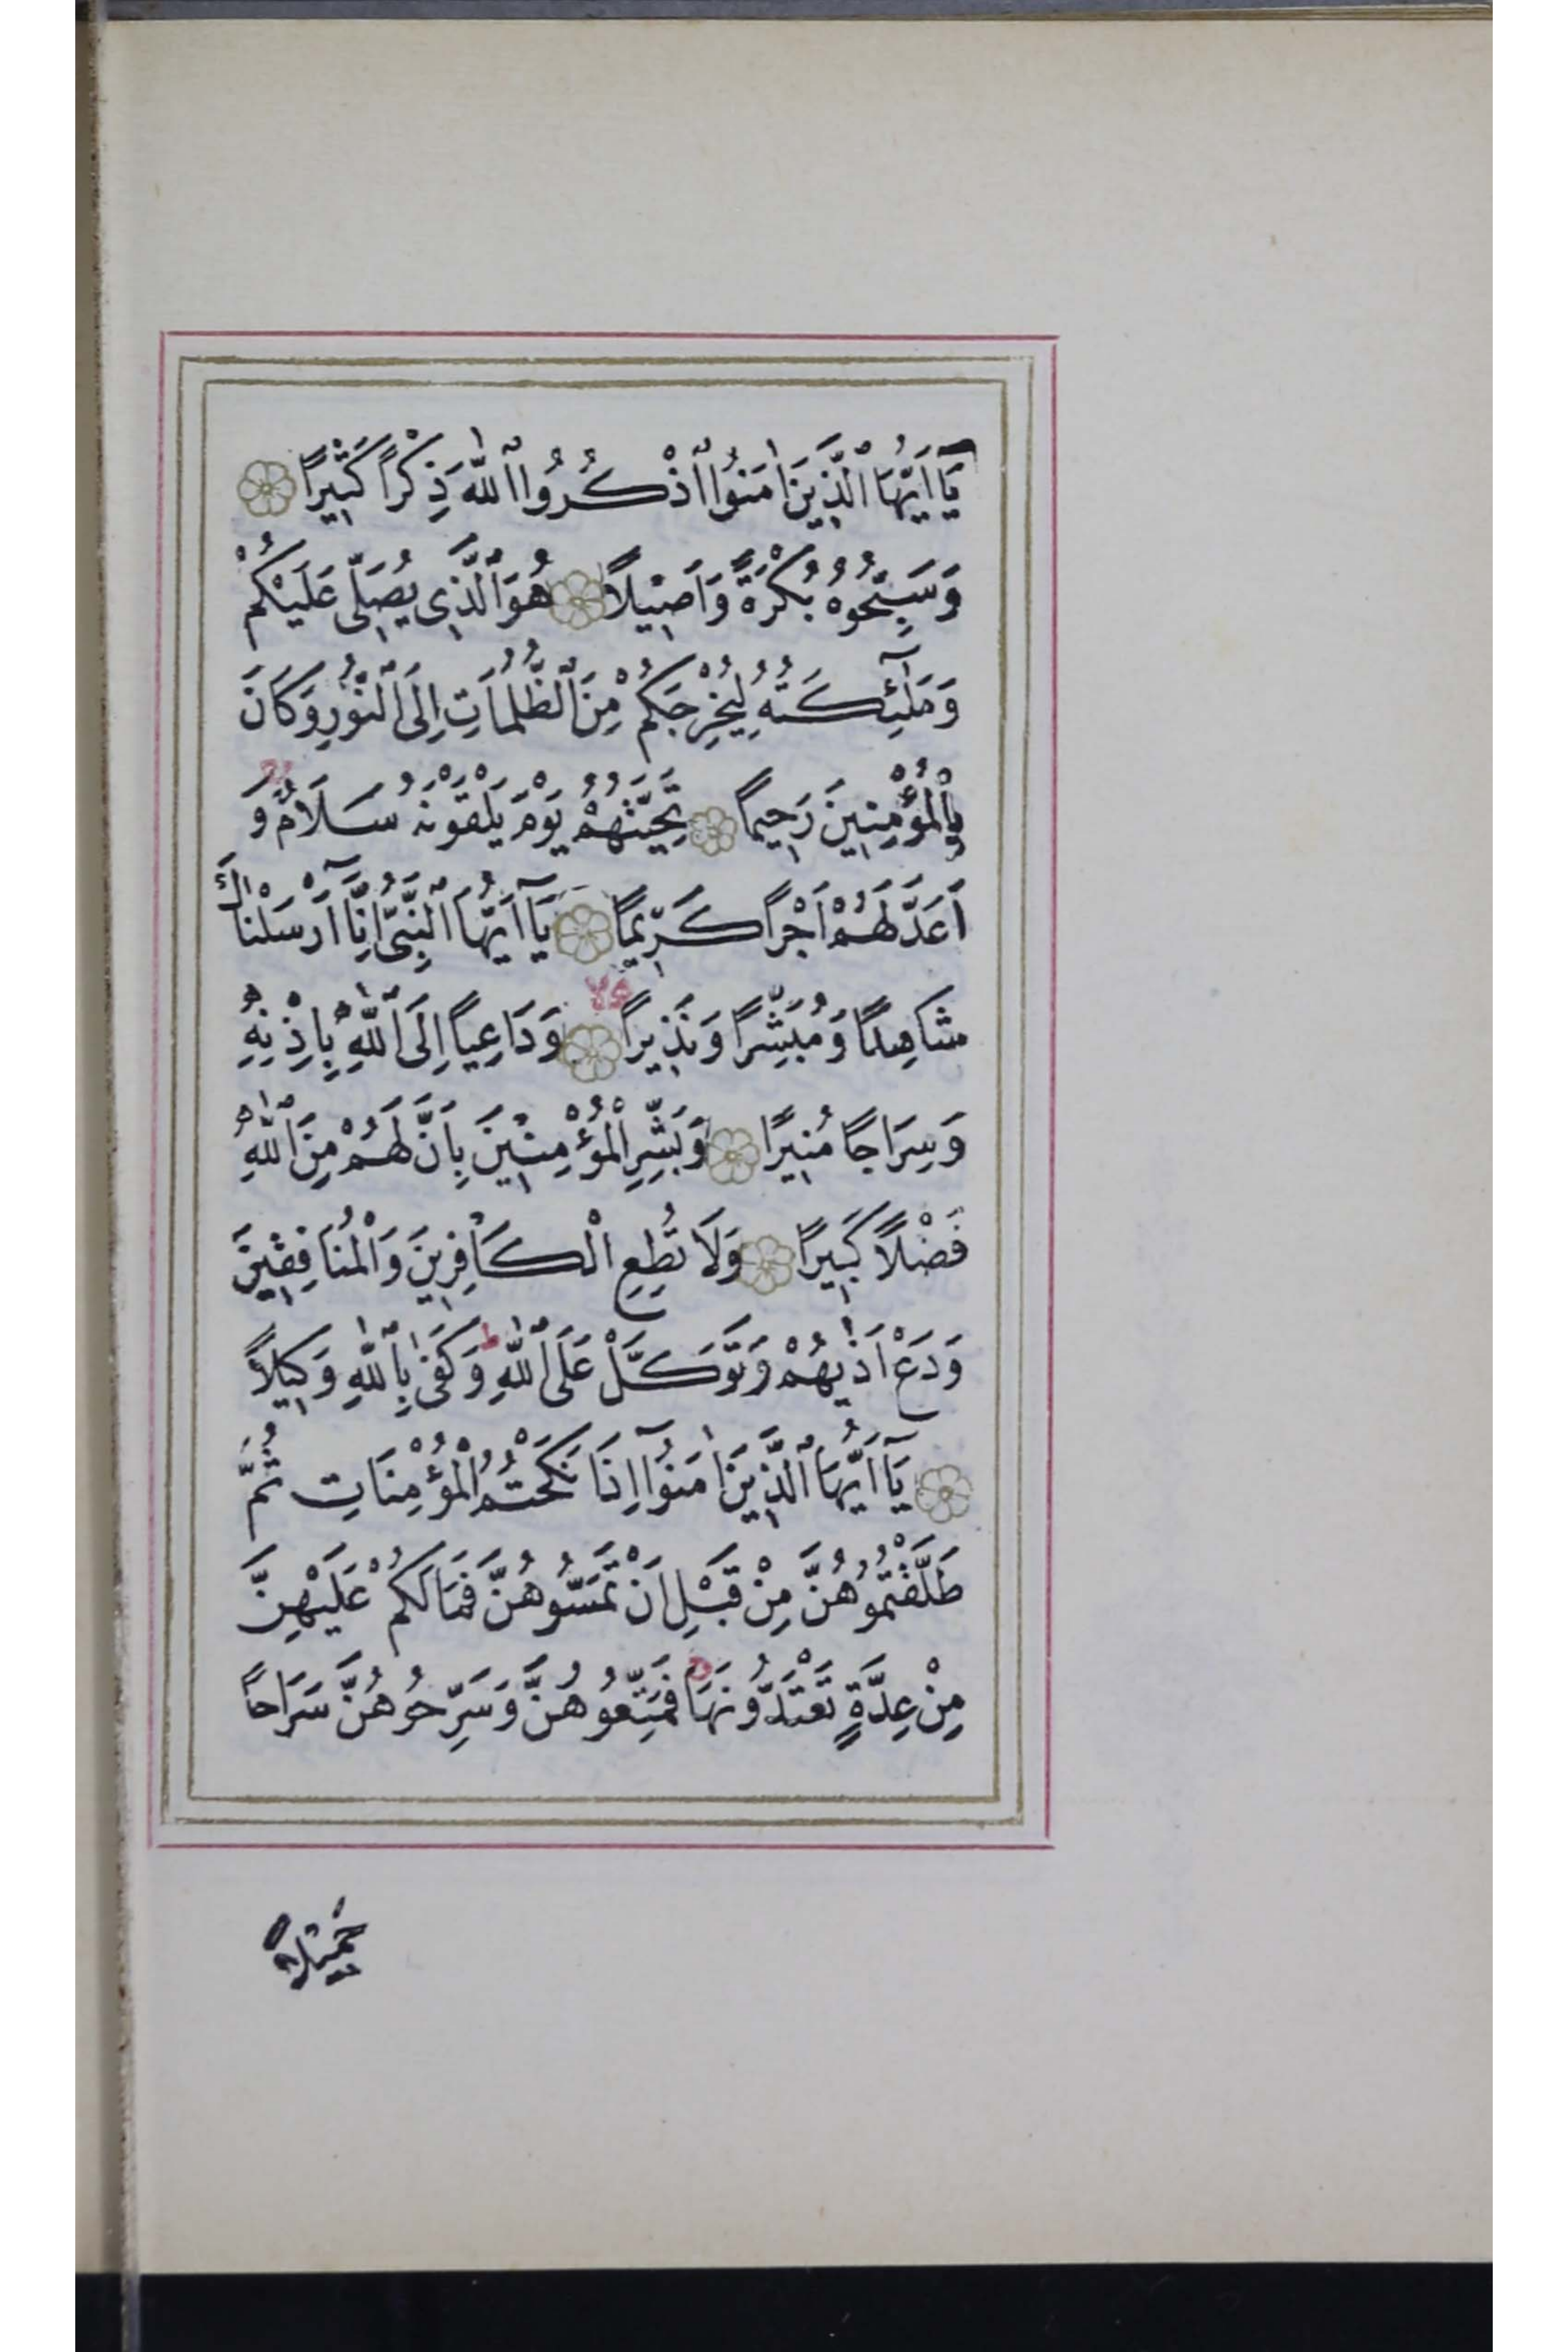 يَٓا اَيُّهَا الَّذ۪ينَ اٰمَنُوا اذْكُرُوا اللّٰهَ ذِكْرًا كَث۪يرًا
وَسَبِّحُوهُ بُكْرَةً وَاَص۪يلًا هُوَ الَّذ۪ي يُصَلّ۪ى عَلَيْكُمْ
وَمَلٰٓئِكَتُهُ لِيُخْرِجَكُمْ مِنَ الظُّلُمَاتِ اِلَى النُّورِ وَكَانَ
بِالْمُؤْمِن۪ينَ رَح۪يمًا تَحِيَّتُهُمْ يَوْمَ يَلْقَوْنَهُ سَلَامٌ وَ
اَعَدَّ لَهُمْ اَجْرًا كَر۪يمًا يَٓا اَيُّهَا النَّبِىُّ اِنَّٓا اَرْسَلْنَاكَ
شَاهِدًا وَمُبَشِّرًا وَنَذ۪يرًا وَدَاعِيًا اِلَى اللّٰهِ بِاِذْنِه۪
وَسِرَاجًا مُن۪يرًا وَبَشِّرِ الْمُؤْمِن۪ينَ بِاَنَّ لَهُمْ مِنَ اللّٰهِ
فَضْلًا كَب۪يرًا وَلَا تُطِعِ الْكَافِر۪ينَ وَالْمُنَافِق۪ينَ
وَدَعْ اَذٰيهُمْ وَتَوَكَّلْ عَلَى اللّٰهِ ط وَكَفٰى بِاللّٰهِ وَك۪يلًا
يَٓا اَيُّهَا الَّذ۪ينَ اٰمَنُٓوا اِذَا نَكَحْتُمُ الْمُؤْمِنَاتِ ثُمَّ
طَلَّقْتُمُوهُنَّ مِنْ قَبْلِ اَنْ تَمَسُّوهُنَّ فَمَا لَكُمْ عَلَيْهِنَّ
مِنْ عِدَّةٍ تَعْتَدُّونَهَا ج فَمَتِّعُوهُنَّ وَسَرِّحُوهُنَّ سَرَاحًا
جَم۪يلًا